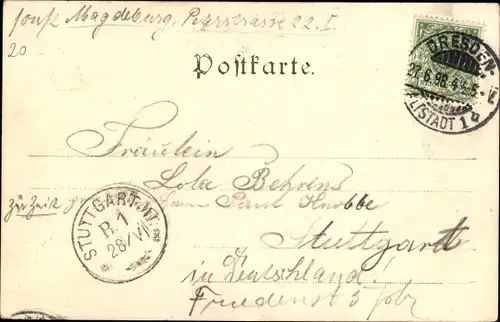 sonst Magdeburg, Peterstrasse 22. I.
20
Postkarte.
DRESDEN-
27.6.98.4-5
ALTSTADT 14
Fräulein
Lola Behrens
zu Zeit Paul Knobbe
STUTTGART
R. 1
28/VI
Stuttgart
in Deutschland!
Friedenst 5